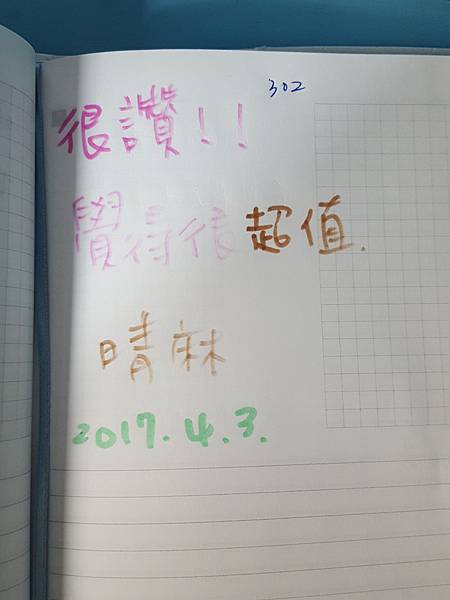 302
很讚！！
覺得很超值.
晴麻
2017.4.3.